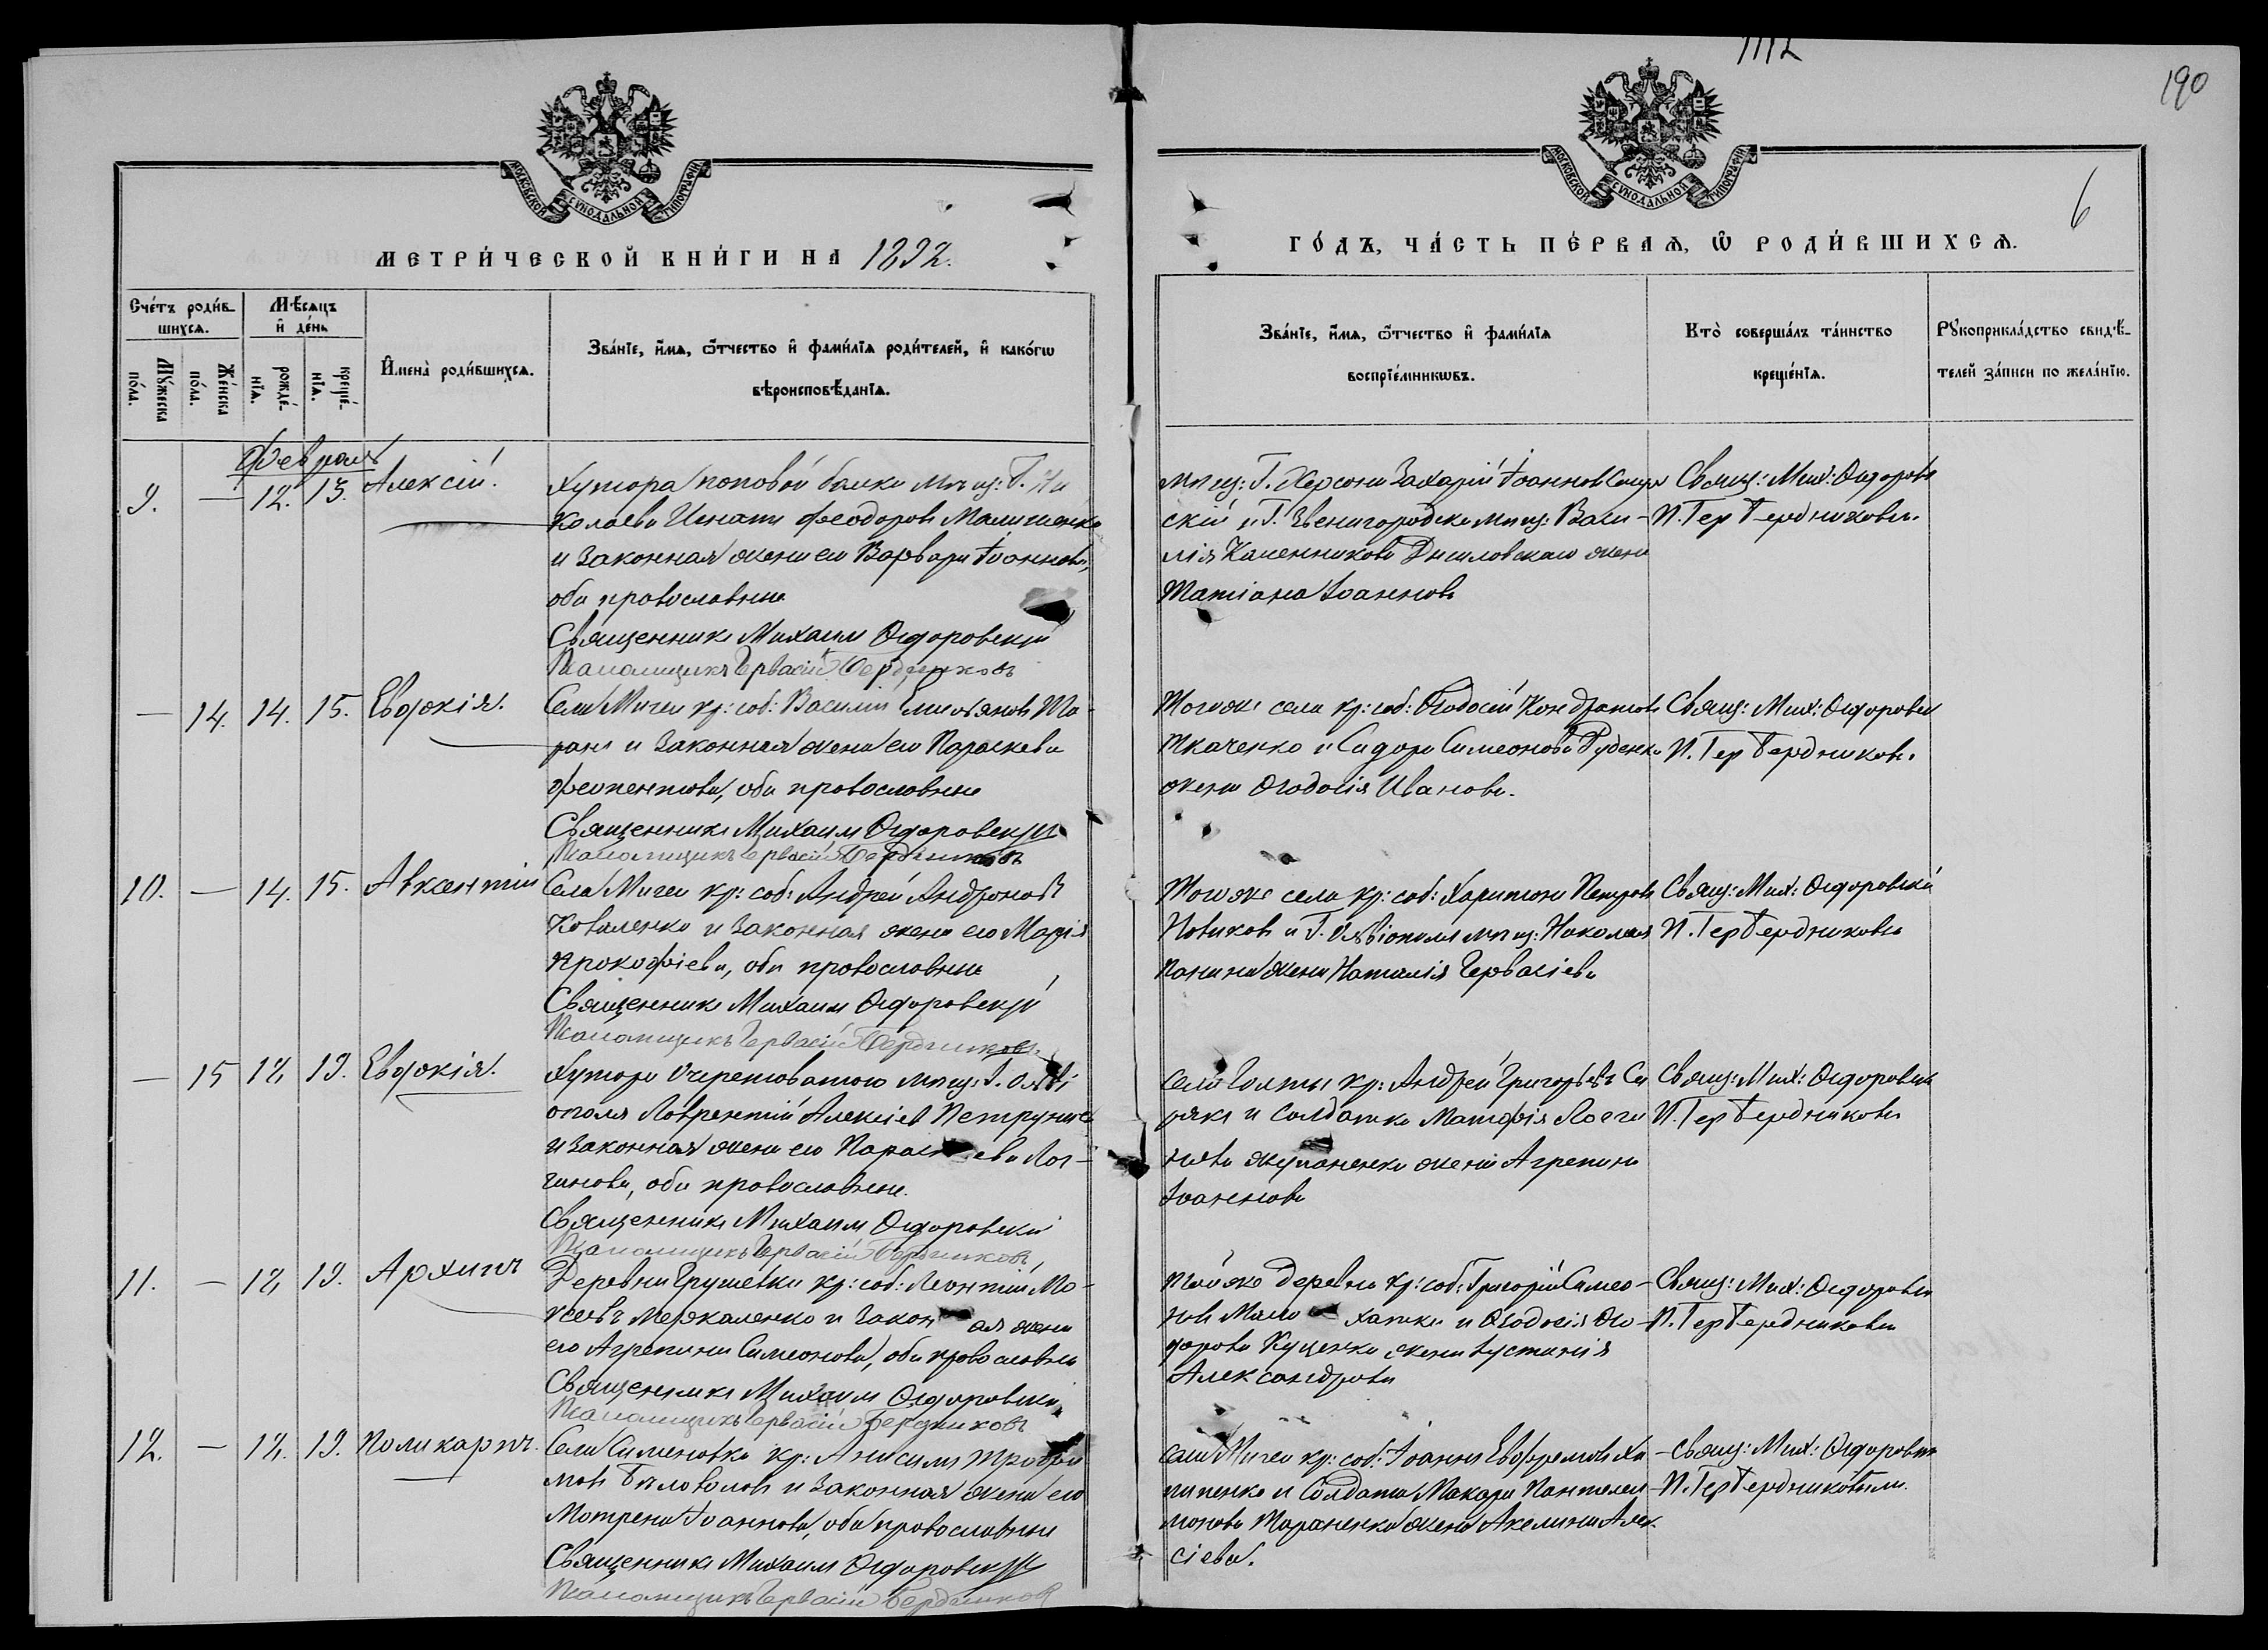 190
6
МОСКОВСКОЙ СѴНОДАЛЬНОЙ ТИПОГРАФІИ
МОСКОВСКОЙ СѴНОДАЛЬНОЙ ТИПОГРАФІИ
МЕТРИ́ЧЕСКОЙ КНИ́ГИ НА 1892.
ГО́ДЪ, ЧА́СТЬ ПЕ́РВАѦ, Ѽ РОДИ́ВШИХСѦ.
Сче́тъ роди́в-
шихсѧ.
Мѣ́сѧцъ
и҆ де́нь
Мꙋ́жеска
по́ла.
Же́нска
по́ла.
рожде́-
нїѧ.
креще́-
нїѧ.
И҆мена̀ роди́вшихсѧ.
Зва́нїе, и҆́мѧ, ѻ҆́тчество и҆ фами́лїѧ роди́телей, и҆ како́гѡ
вѣроисповѣ́данїѧ.
Зва́нїе, и҆́мѧ, ѻ҆́тчество и҆ фами́лїѧ
воспрїе́мникѡвъ.
Кто̀ соверша́лъ та́инство
креще́нїѧ.
Рꙋкоприкла́дство свидѣ́-
телей за́писи по жела́нїю.
Февраль
9. — 12. 13. Алексій.
Хутора поповой балки мѣщ: Г. Ни
колаева Игнатій Феодоровъ Малишенко
и законная жена его Варвара Іоаннова,
оба православные
Священникъ Михаилъ Ѳедоровскій
Псаломщикъ Гервасій Бердниковъ
мѣщ: Г. Херсона Захарій Іоанновъ
скій и Г. Звенигородска мѣщ: Васи-
лія Каменникова жена
Татіана Іоаннова
Свящ: Мих: Ѳедоровск
П. Гер Бердниковъ.
— 14. 14. 15. Евдокія.
Села Мигеи кр: соб: Василій Емиліановъ Та-
ранъ и законная жена его Параскева
Феопентова, оба православные
Священникъ Михаилъ Ѳедоровскій
Псаломщикъ Гервасій Бердниковъ
Того же села кр: соб: Ѳеодосій Кондратовъ
Ткаченко и Сидора Симеонова Руденко
жена Ѳеодосія Иванова.
Свящ: Мих: Ѳедоровск
П. Гер Бердниковъ.
10. — 14. 15. Авксентій
Села Мигеи кр: соб: Андрей Андроновъ
Коваленко и законная жена его Марія
Прокофіева, оба православные
Священникъ Михаилъ Ѳедоровскій
Псаломщикъ Гервасій Бердниковъ.
Того же села кр: соб: Харитонъ Петровъ
Новиковъ и Г. Ольвіополя мѣщ: Николая
Панина жена Наталія Гервасіева
Свящ: Мих: Ѳедоровскій
П. Гер Бердниковъ
— 15 18 19. Евдокія.
Хутора Очеретоватого мѣщ: Г. Ольві
ополя Лаврентій Алексіевъ Петруник
и законная жена его Парас ева Лог-
гинова, оба православные.
Священникъ Михаилъ Ѳедоровскій
Псаломщикъ Гервасій Бердниковъ
села Голты кр: Андрей Григорьевъ Си
рякъ и солдатка Матфія Логги
нова жена Агрепина
Іоаннова
Свящ: Мих: Ѳедоровск
П. Гер Бердниковъ
11. — 18 19. Архипъ
Деревни Грушевки кр: соб: Леонтій Мо-
Мержаленко и закон ая жена
его Агрепина Симеонова, оба православные
Священникъ Михаилъ Ѳедоровскій
Псаломщикъ Гервасій Бердниковъ
той же деревни кр: соб: Григорій Симео-
новъ хатка и Ѳеодосія Ѳео-
дорова Куценка жена Іустинія
Александрова
Свящ: Мих: Ѳедоровск
П. Гер Бердниковъ
12. — 18. 19. Поликарпъ.
Села Сименовки кр: Анисимъ Трофи
мовъ Бѣловоловъ и законная жена его
Мотрена Іоаннова, оба православные
Священникъ Михаилъ Ѳедоровскій
Псаломщикъ Гервасій Бердниковъ
села Мигеи кр: соб: Іоаннъ Евфремовъ Хи
пиненко и Солдата Макара Пантелеи
монова Тараненка жена Акелина Алек
сіева.
Свящ: Мих: Ѳедоровск
П. Гер Бердниковъ.